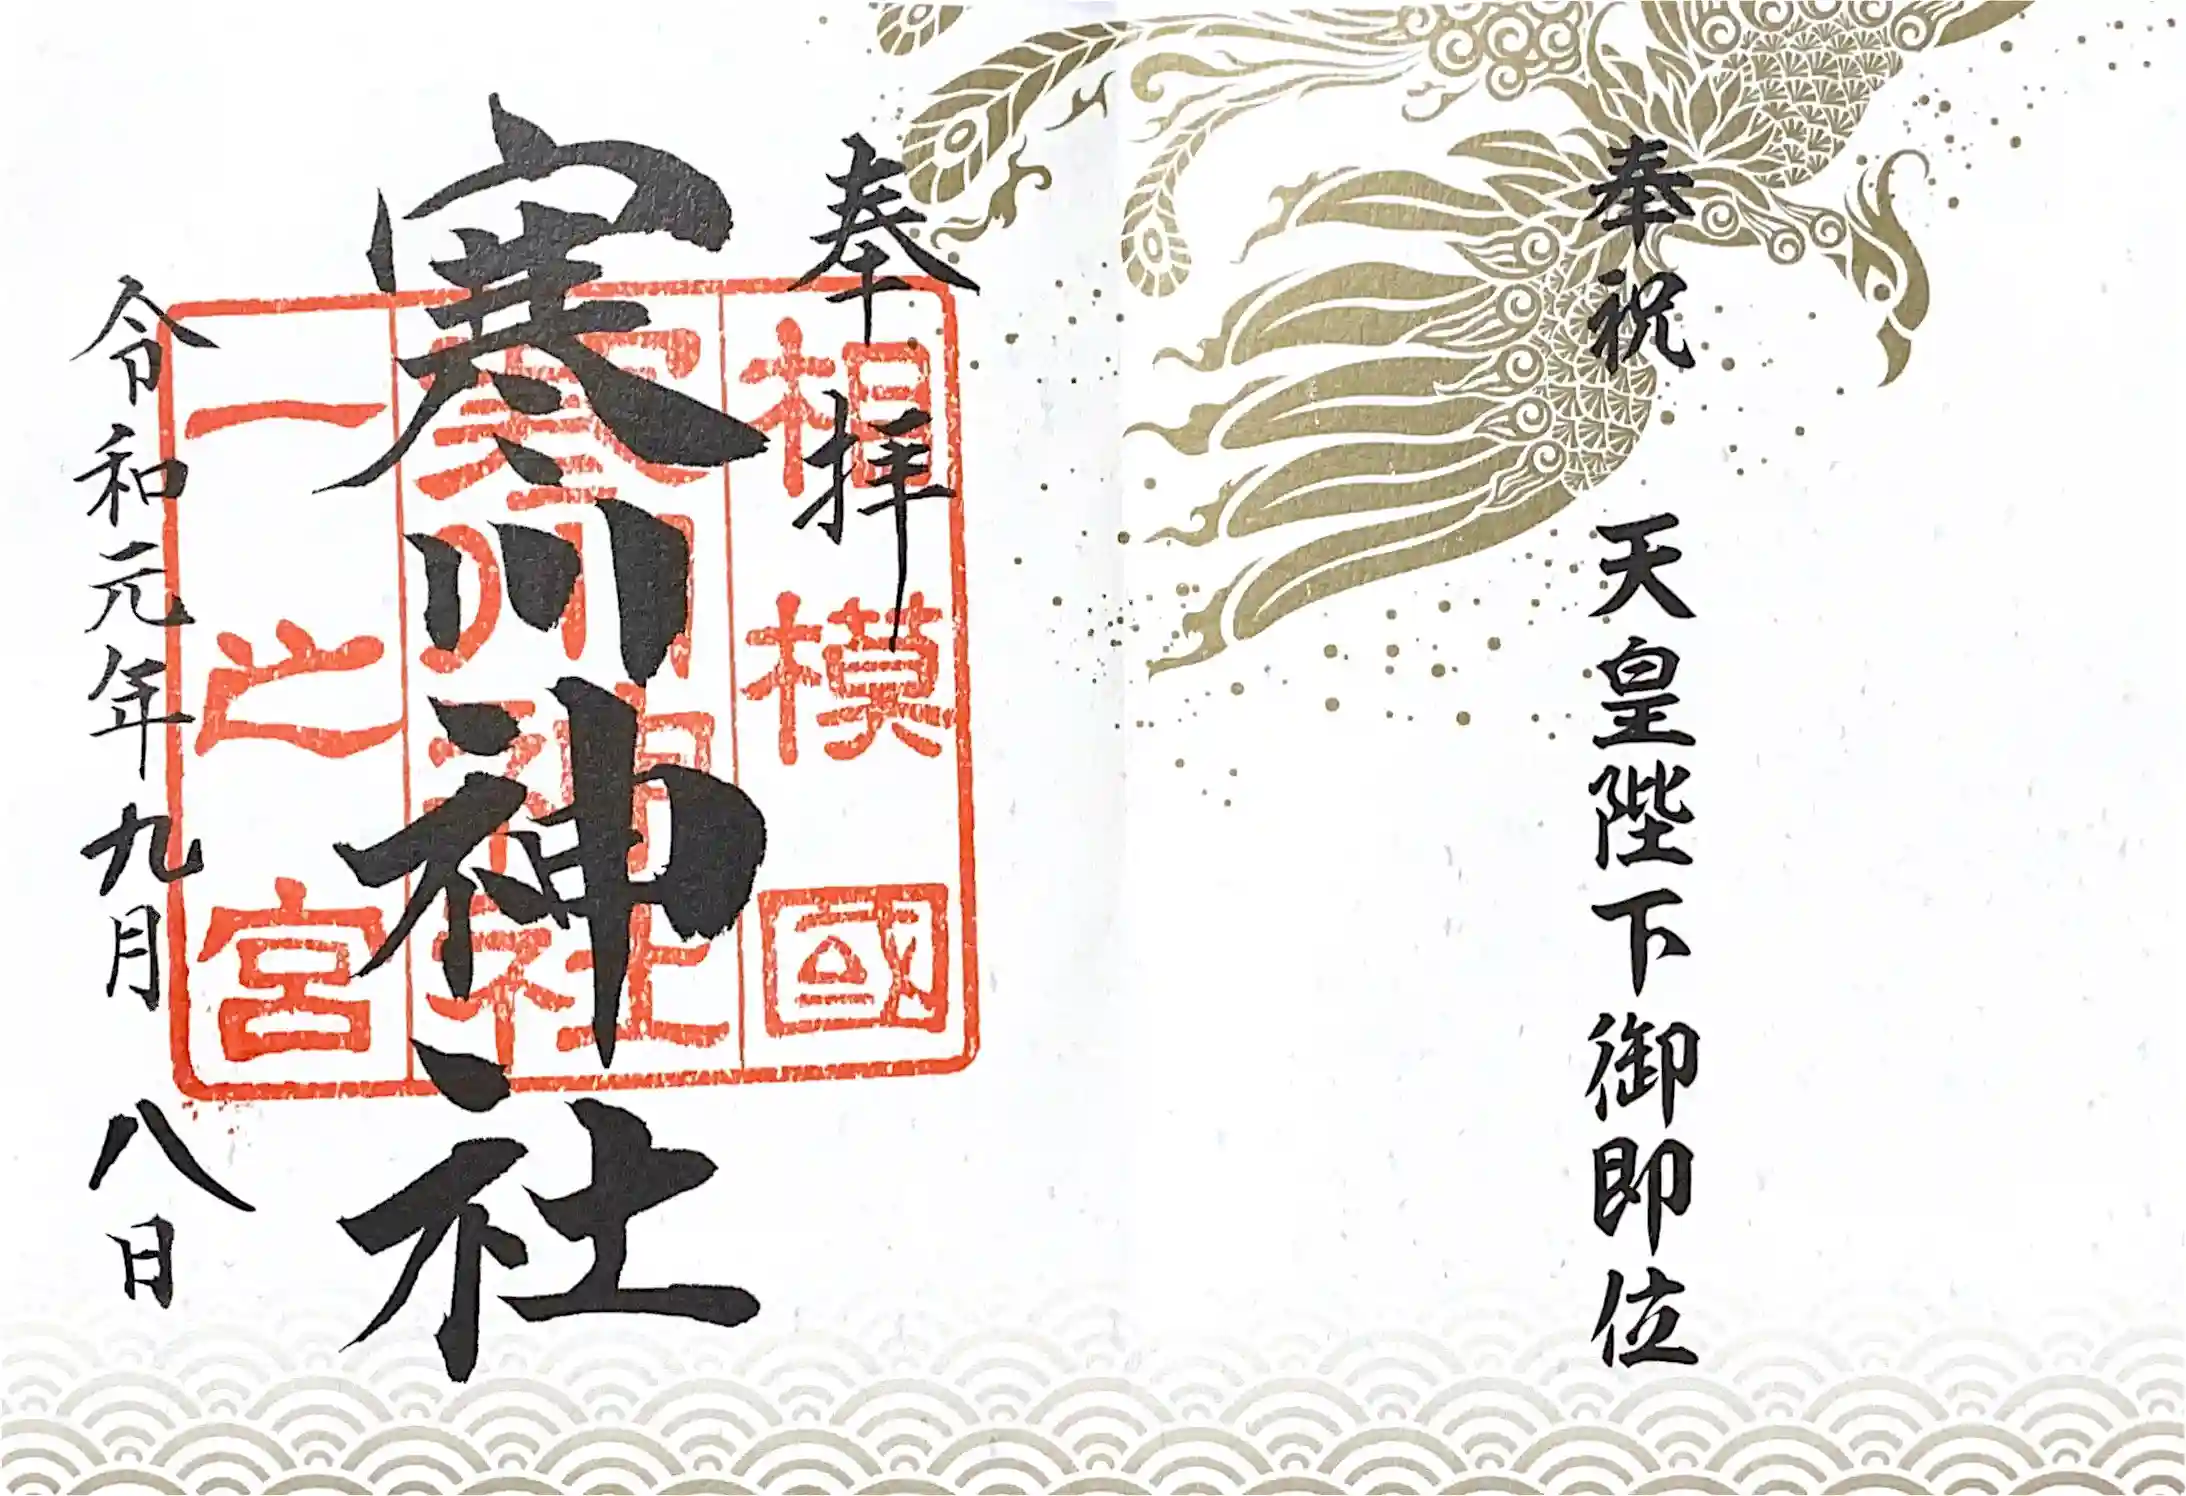 奉祝 天皇陛下御即位
奉拝
寒川神社
令和元年九月八日
相模國
寒川神社
一之宮